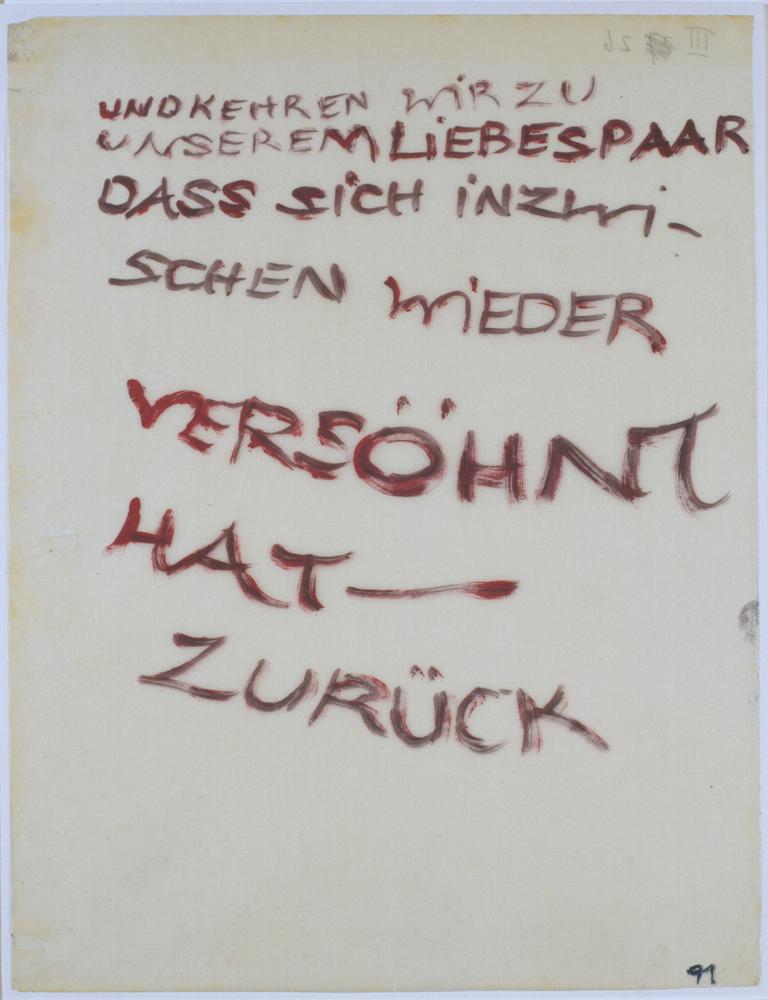 III 26
UND KEHREN WIR ZU
UNSEREM LIEBESPAAR
DASS SICH INZWI-
SCHEN WIEDER
VERSÖHNT
HAT—
ZURÜCK
91